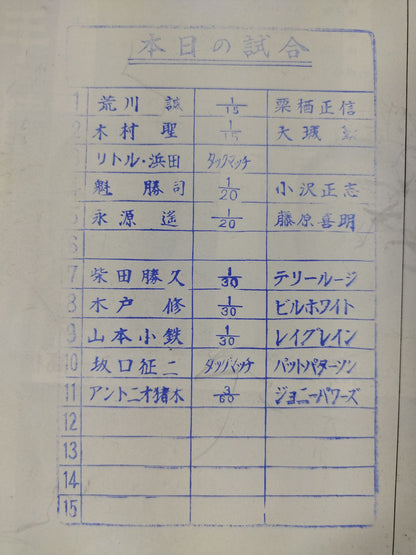 本日の試合
1 荒川 誠 1/15 栗栖正信
2 木村 聖 1/15 大城
3 リトル・浜田 タッグマッチ
4 魁 勝司 1/20 小沢正志
5 永源 遥 1/20 藤原喜明
6
7 柴田勝久 1/30 テリールージ
8 木戸 修 1/30 ビルホワイト
9 山本小鉄 1/30 レイグレイン
10 坂口征二 タッグマッチ パットパターソン
11 アントニオ猪木 3/60 ジョニーパワーズ
12
13
14
15